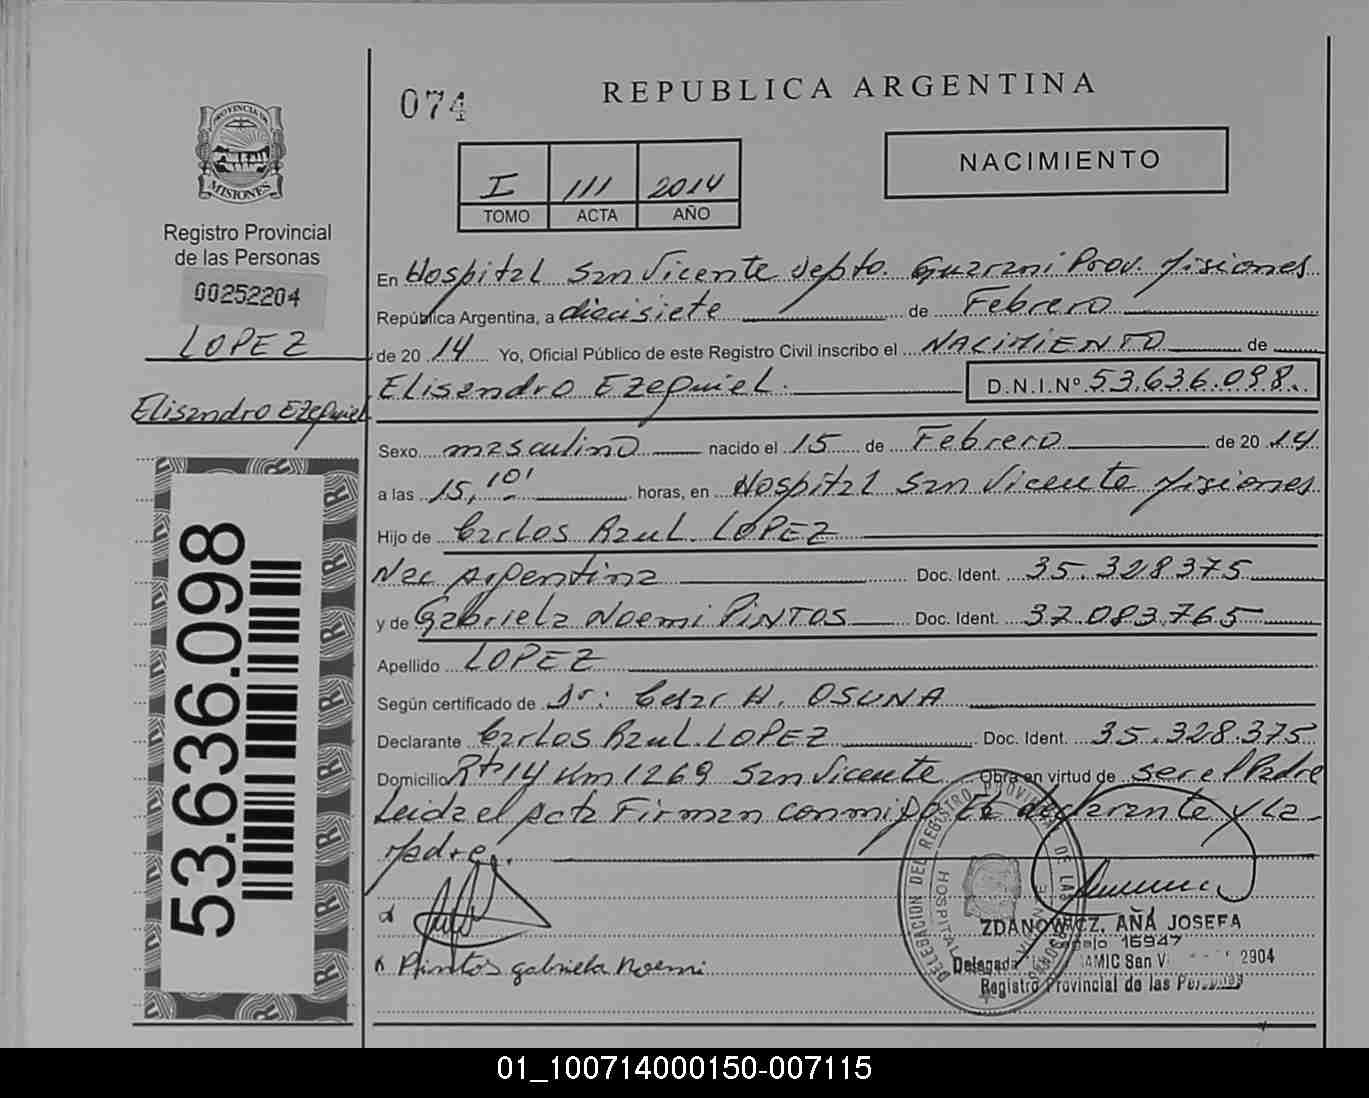 074
REPUBLICA ARGENTINA
NACIMIENTO
I III 2014
TOMO ACTA AÑO
PROVINCIA DE
MISIONES
Registro Provincial
de las Personas
00252204
LOPEZ
Elisandro Ezequiel
53.636.098
En Hospital San Vicente Depto. Guarani Prov. Misiones
República Argentina, a diecisiete de Febrero
de 20 14 Yo, Oficial Público de este Registro Civil inscribo el NACIMIENTO de
Elisandro Ezequiel. D.N.I.Nº 53.636.098.
Sexo masculino nacido el 15 de Febrero de 20 14
a las 15,10' horas, en Hospital San Vicente Misiones
Hijo de Carlos Raul LOPEZ
Nac Argentina Doc. Ident. 35.328.375
y de Gabriela Noemi PINTOS Doc. Ident. 37.083.765
Apellido LOPEZ
Según certificado de Dr: Cesar H. OSUNA
Declarante Carlos Raul LOPEZ Doc. Ident. 35.328.375
Domicilio Rta 14 Km 1269 San Vicente Obra en virtud de ser el Padre
Leida el acta Firman conmigo el declarante y La
Madre.
Pintos gabriela Noemi
DELEGACION DEL REGISTRO PROVINCIAL DE LAS PERSONAS
HOSPITAL
ZDANOWICZ, AÑA JOSEFA
16947
Delegada AMIC San V 2904
Registro Provincial de las Personas
01_100714000150-007115